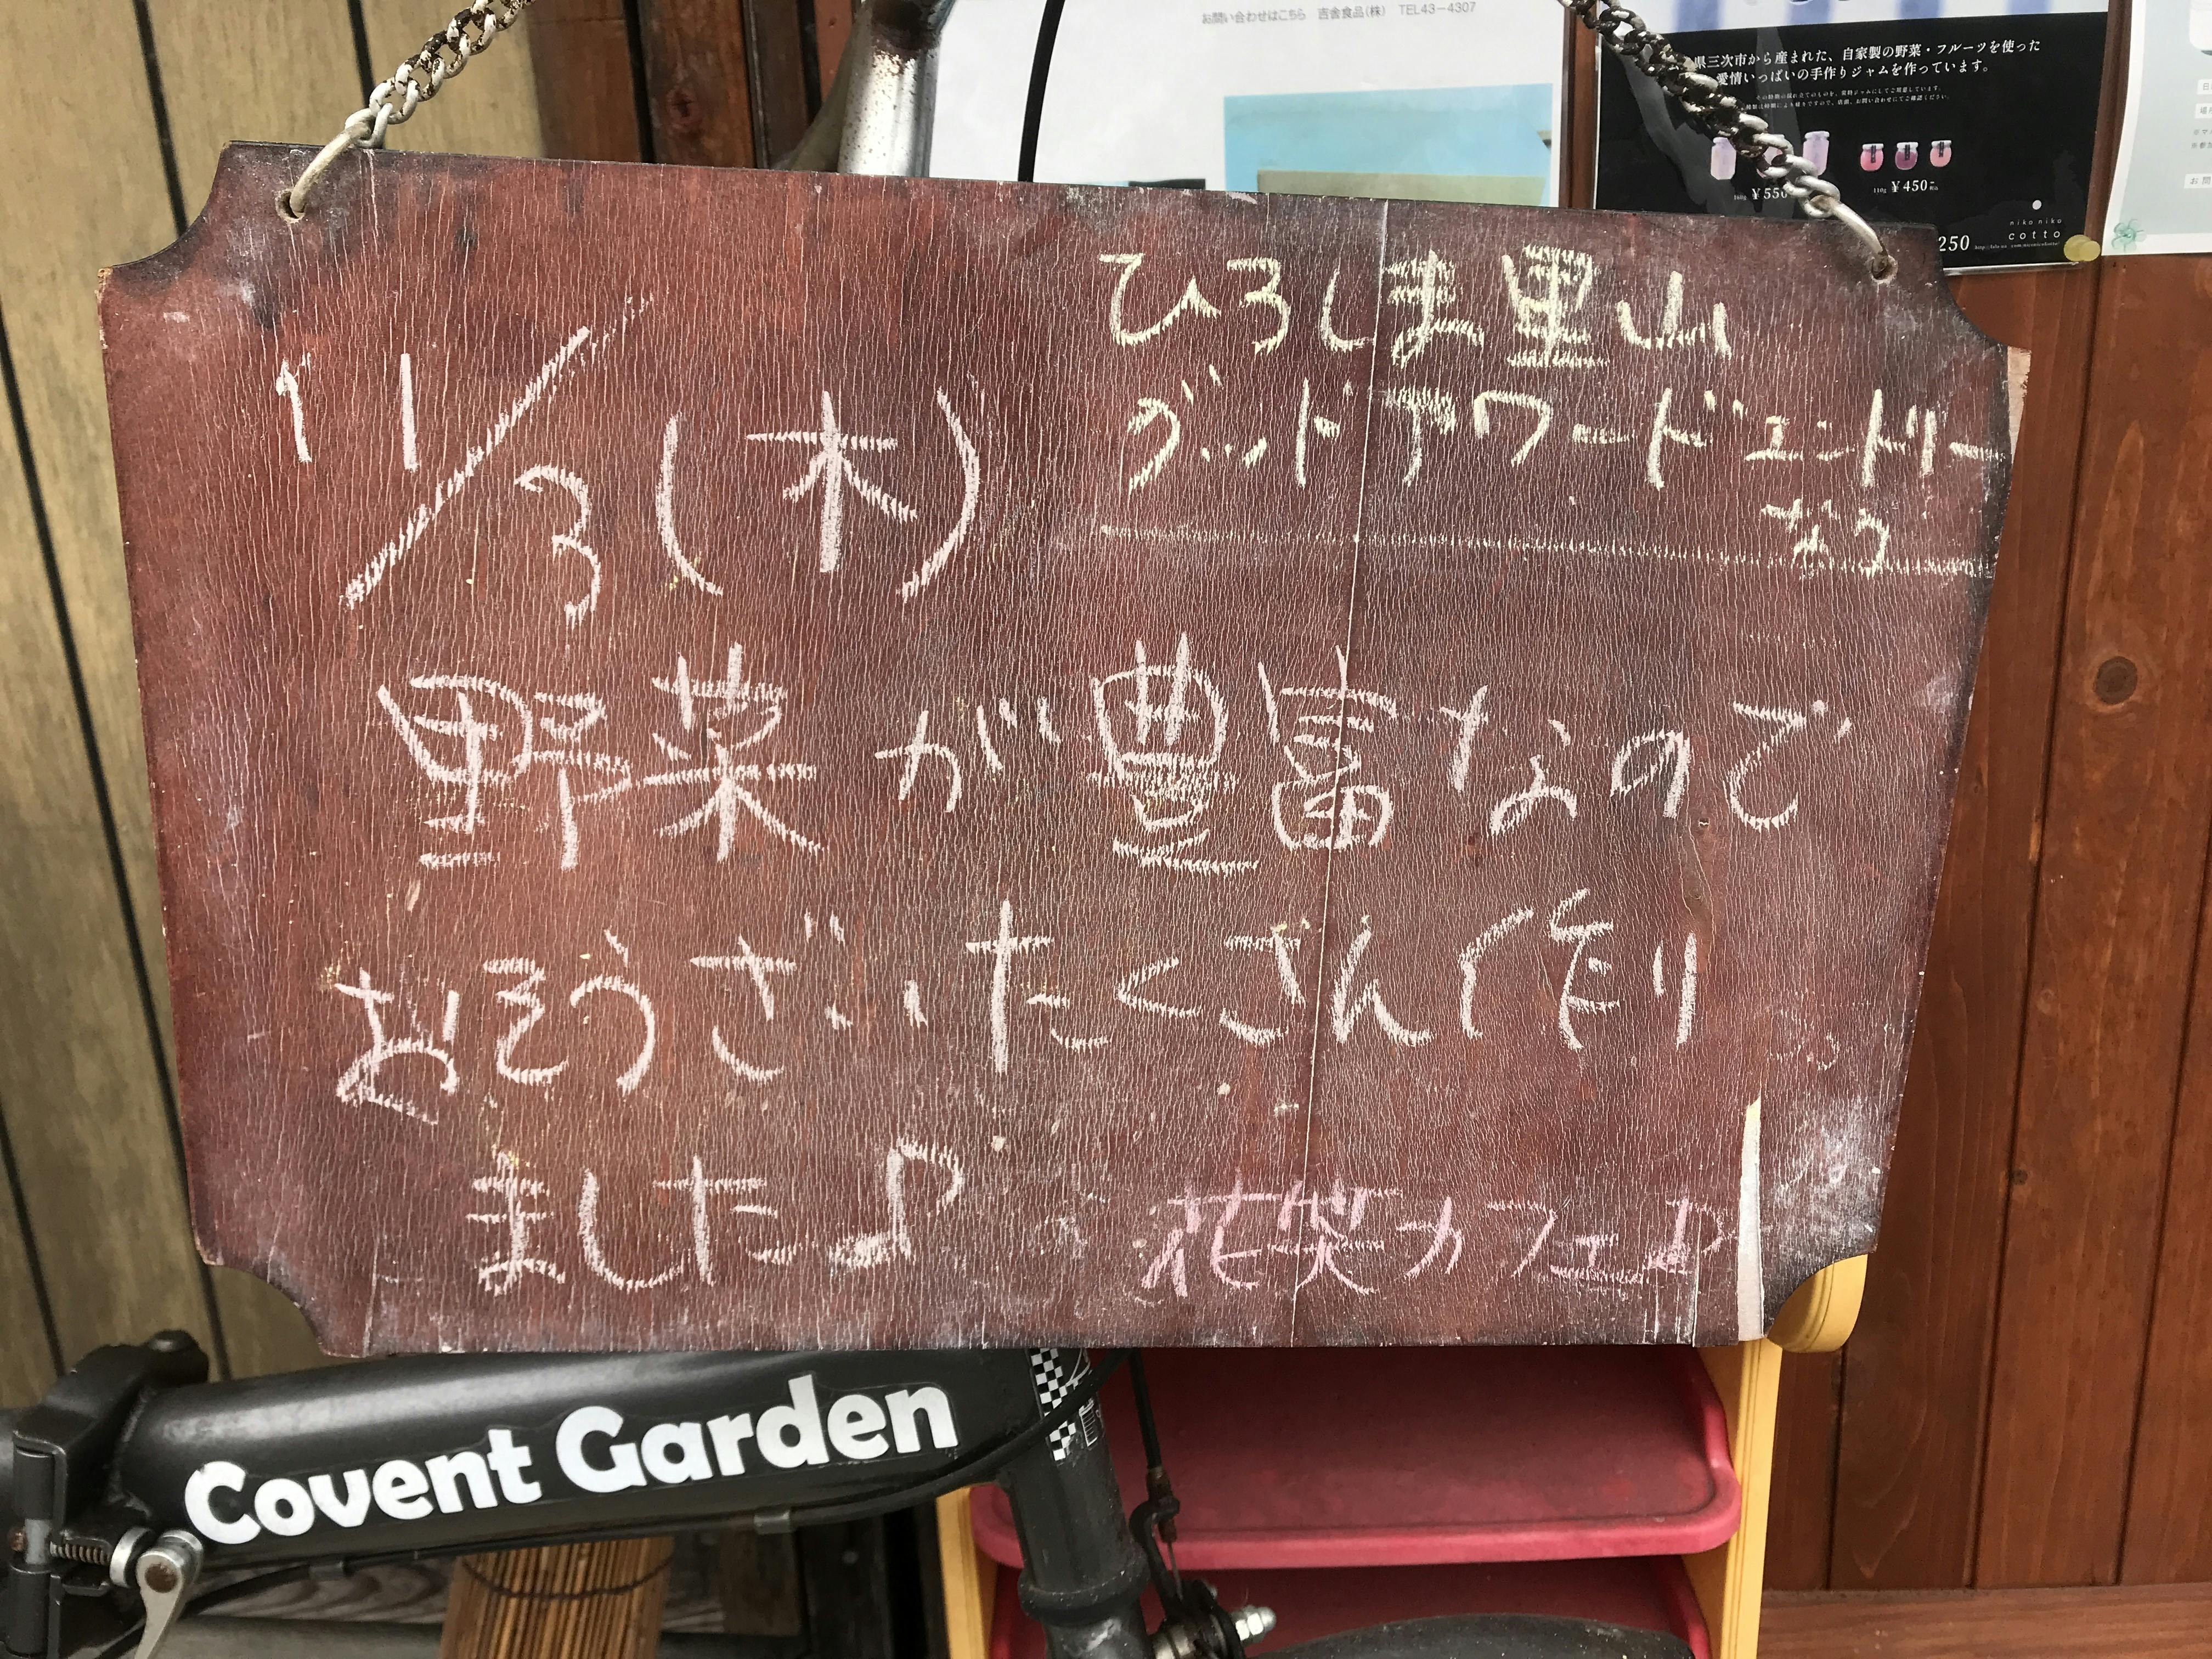 お問い合わせはこちら 吉舎食品(株) TEL43-4307
県三次市から産まれた、自家製の野菜・フルーツを使った
愛情いっぱいの手作りジャムを作っています。
160g ¥550
110g ¥450
niko niko
cotto
250
ひろしま里山
グッドアワードエントリー
中
11/3(木)
野菜が豊富なので
おそうざいたくさん作り
ました♪
花笑カフェ♪
Covent Garden